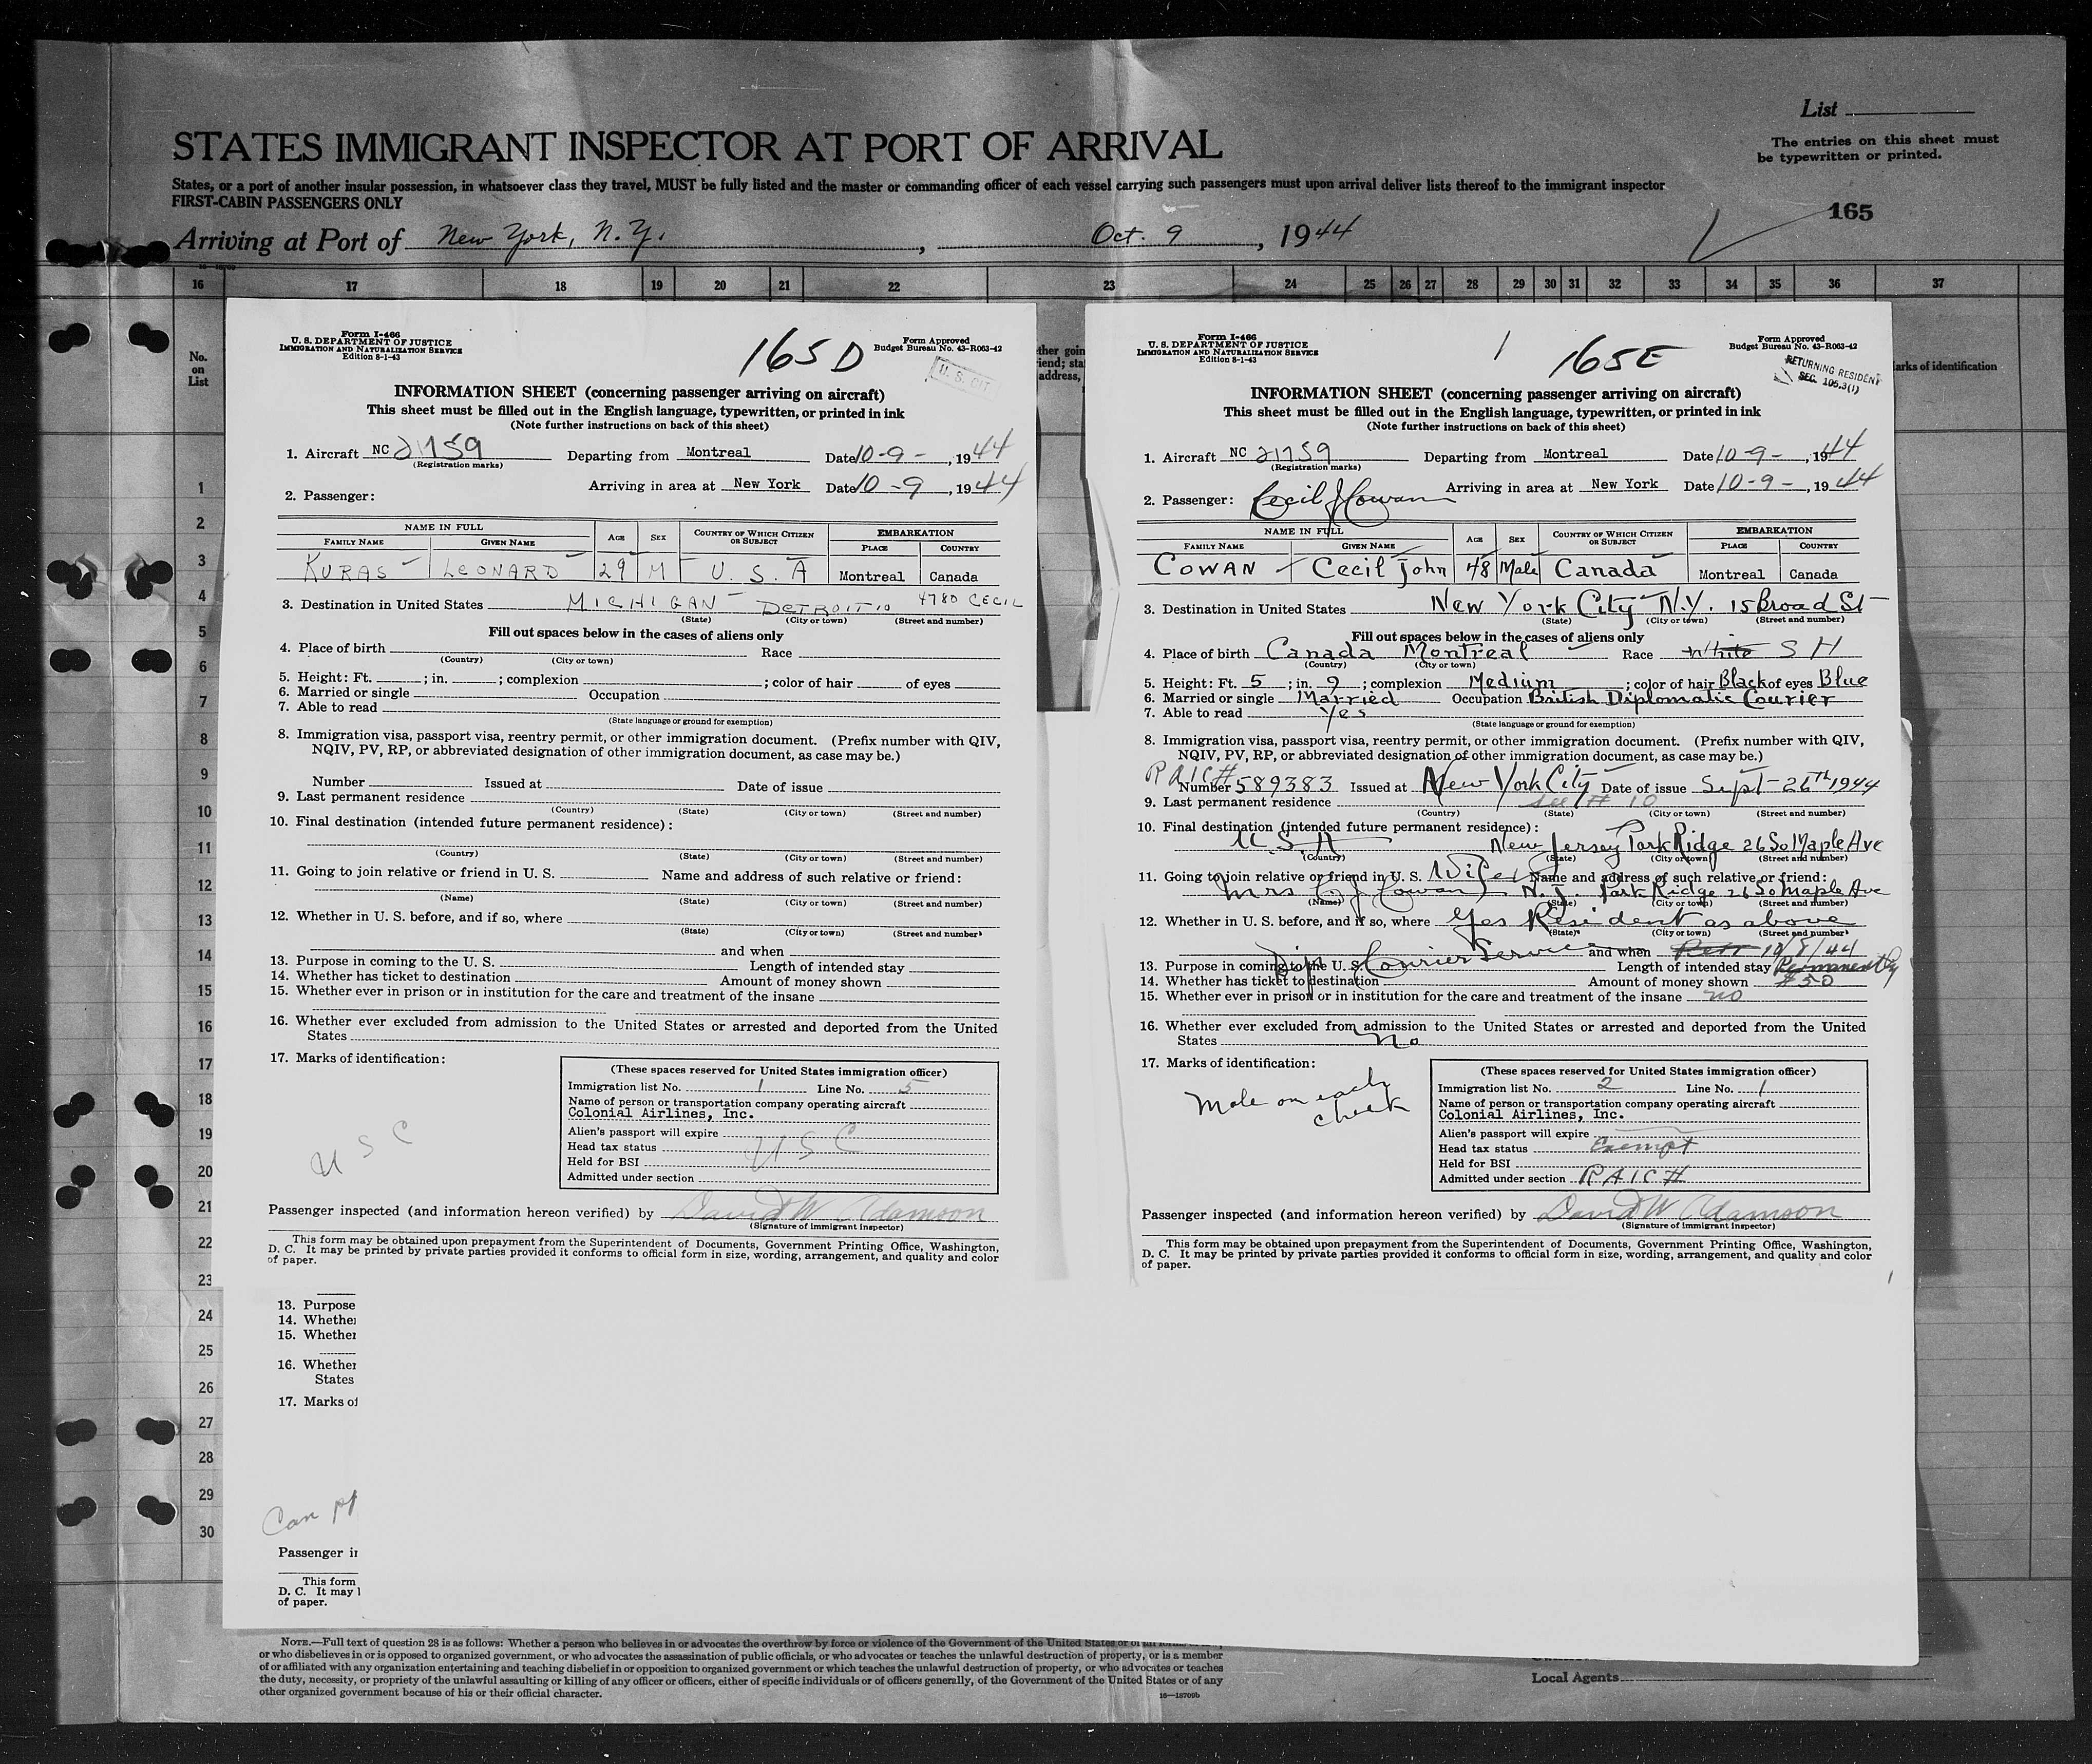 List
STATES IMMIGRANT INSPECTOR AT PORT OF ARRIVAL
The entries on this sheet must
be typewritten or printed.
States, or a port of another insular possession, in whatsoever class they travel, MUST be fully listed and the master or commanding officer of each vessel carrying such passengers must upon arrival deliver lists thereof to the immigrant inspector
FIRST-CABIN PASSENGERS ONLY
165
Arriving at Port of New York, N.Y. , Oct. 9 , 1944
16 17 18 19 20 21 22 23 24 25 26 27 28 29 30 31 32 33 34 35 36 37
No.
on
List
1
2
3
4
5
6
7
8
9
10
11
12
13
14
15
16
17
18
19
20
21
22
23
24
25
26
27
28
29
30
Form I-466
U. S. DEPARTMENT OF JUSTICE
IMMIGRATION AND NATURALIZATION SERVICE
Edition 8-1-43
165 D
Form Approved
Budget Bureau No. 43-R063-42
U. S. CIT
INFORMATION SHEET (concerning passenger arriving on aircraft)
This sheet must be filled out in the English language, typewritten, or printed in ink
(Note further instructions on back of this sheet)
1. Aircraft NC 21759 Departing from Montreal Date 10-9- , 1944
(Registration marks)
Arriving in area at New York Date 10-9 , 1944
2. Passenger:
NAME IN FULL AGE SEX COUNTRY OF WHICH CITIZEN OR SUBJECT EMBARKATION
FAMILY NAME GIVEN NAME PLACE COUNTRY
KURAS LEONARD 29 M U. S. A Montreal Canada
3. Destination in United States MICHIGAN DETROIT 10 4780 CECIL
(State) (City or town) (Street and number)
Fill out spaces below in the cases of aliens only
4. Place of birth Race
(Country) (City or town)
5. Height: Ft. ; in. ; complexion ; color of hair of eyes
6. Married or single Occupation
7. Able to read
(State language or ground for exemption)
8. Immigration visa, passport visa, reentry permit, or other immigration document. (Prefix number with QIV,
NQIV, PV, RP, or abbreviated designation of other immigration document, as case may be.)
Number Issued at Date of issue
9. Last permanent residence
(Country) (State) (City or town) (Street and number)
10. Final destination (intended future permanent residence):
(Country) (State) (City or town) (Street and number)
11. Going to join relative or friend in U. S. Name and address of such relative or friend:
(Name) (State) (City or town) (Street and number)
12. Whether in U. S. before, and if so, where
(State) (City or town) (Street and number)
and when
13. Purpose in coming to the U. S. Length of intended stay
14. Whether has ticket to destination Amount of money shown
15. Whether ever in prison or in institution for the care and treatment of the insane
16. Whether ever excluded from admission to the United States or arrested and deported from the United
States
17. Marks of identification:
U S C
(These spaces reserved for United States immigration officer)
Immigration list No. 1 Line No. 5
Name of person or transportation company operating aircraft
Colonial Airlines, Inc.
Alien's passport will expire
Head tax status U S C
Held for BSI
Admitted under section
Passenger inspected (and information hereon verified) by David W Adamson
(Signature of immigrant inspector)
This form may be obtained upon prepayment from the Superintendent of Documents, Government Printing Office, Washington,
D. C. It may be printed by private parties provided it conforms to official form in size, wording, arrangement, and quality and color
of paper.
13. Purpose
14. Whether
15. Whether
16. Whether
States
17. Marks of
Can
Passenger in
This form
D. C. It may
of paper.
Form I-466
U. S. DEPARTMENT OF JUSTICE
IMMIGRATION AND NATURALIZATION SERVICE
Edition 8-1-43
1 165E
Form Approved
Budget Bureau No. 43-R063-42
RETURNING RESIDENT
SEC. 105.3(1)
INFORMATION SHEET (concerning passenger arriving on aircraft)
This sheet must be filled out in the English language, typewritten, or printed in ink
(Note further instructions on back of this sheet)
1. Aircraft NC 21759 Departing from Montreal Date 10-9- , 1944
(Registration marks)
Arriving in area at New York Date 10-9- , 1944
2. Passenger: Cecil J Cowan
NAME IN FULL AGE SEX COUNTRY OF WHICH CITIZEN OR SUBJECT EMBARKATION
FAMILY NAME GIVEN NAME PLACE COUNTRY
COWAN Cecil John 48 Male Canada Montreal Canada
3. Destination in United States New York City N.Y. 15 Broad St
(State) (City or town) (Street and number)
Fill out spaces below in the cases of aliens only
4. Place of birth Canada Montreal Race White S H
(Country) (City or town)
5. Height: Ft. 5 ; in. 9 ; complexion Medium ; color of hair Black of eyes Blue
6. Married or single Married Occupation British Diplomatic Courier
7. Able to read Yes
(State language or ground for exemption)
8. Immigration visa, passport visa, reentry permit, or other immigration document. (Prefix number with QIV,
NQIV, PV, RP, or abbreviated designation of other immigration document, as case may be.)
R A I C #
Number 589383 Issued at New York City Date of issue Sept 26th 1944
9. Last permanent residence see # 10
(Country) (State) (City or town) (Street and number)
10. Final destination (intended future permanent residence):
U.S.A New Jersey Park Ridge 26 So Maple Ave
(Country) (State) (City or town) (Street and number)
11. Going to join relative or friend in U. S. Wife Name and address of such relative or friend:
Mrs C J Cowan N.J. Park Ridge 26 So Maple Ave
(Name) (State) (City or town) (Street and number)
12. Whether in U. S. before, and if so, where Yes Resident as above
(State) (City or town) (Street and number)
and when 10/8/44
13. Purpose in coming to the U. S. Dip Courier Service Length of intended stay Permanently
14. Whether has ticket to destination Amount of money shown $50
15. Whether ever in prison or in institution for the care and treatment of the insane no
16. Whether ever excluded from admission to the United States or arrested and deported from the United
States No
17. Marks of identification:
Mole on each
cheek
(These spaces reserved for United States immigration officer)
Immigration list No. 2 Line No. 1
Name of person or transportation company operating aircraft
Colonial Airlines, Inc.
Alien's passport will expire
Head tax status Exempt
Held for BSI
Admitted under section R A I C #
Passenger inspected (and information hereon verified) by David W Adamson
(Signature of immigrant inspector)
This form may be obtained upon prepayment from the Superintendent of Documents, Government Printing Office, Washington,
D. C. It may be printed by private parties provided it conforms to official form in size, wording, arrangement, and quality and color
of paper.
marks of identification
NOTE.—Full text of question 28 is as follows: Whether a person who believes in or advocates the overthrow by force or violence of the Government of the United States or of all forms of
or who disbelieves in or is opposed to organized government, or who advocates the assassination of public officials, or who advocates or teaches the unlawful destruction of property, or is a member
of or affiliated with any organization entertaining and teaching disbelief in or opposition to organized government or which teaches the unlawful destruction of property, or who advocates or teaches
the duty, necessity, or propriety of the unlawful assaulting or killing of any officer or officers, either of specific individuals or of officers generally, of the Government of the United States or of any
other organized government because of his or their official character.
16—18709b
Local Agents